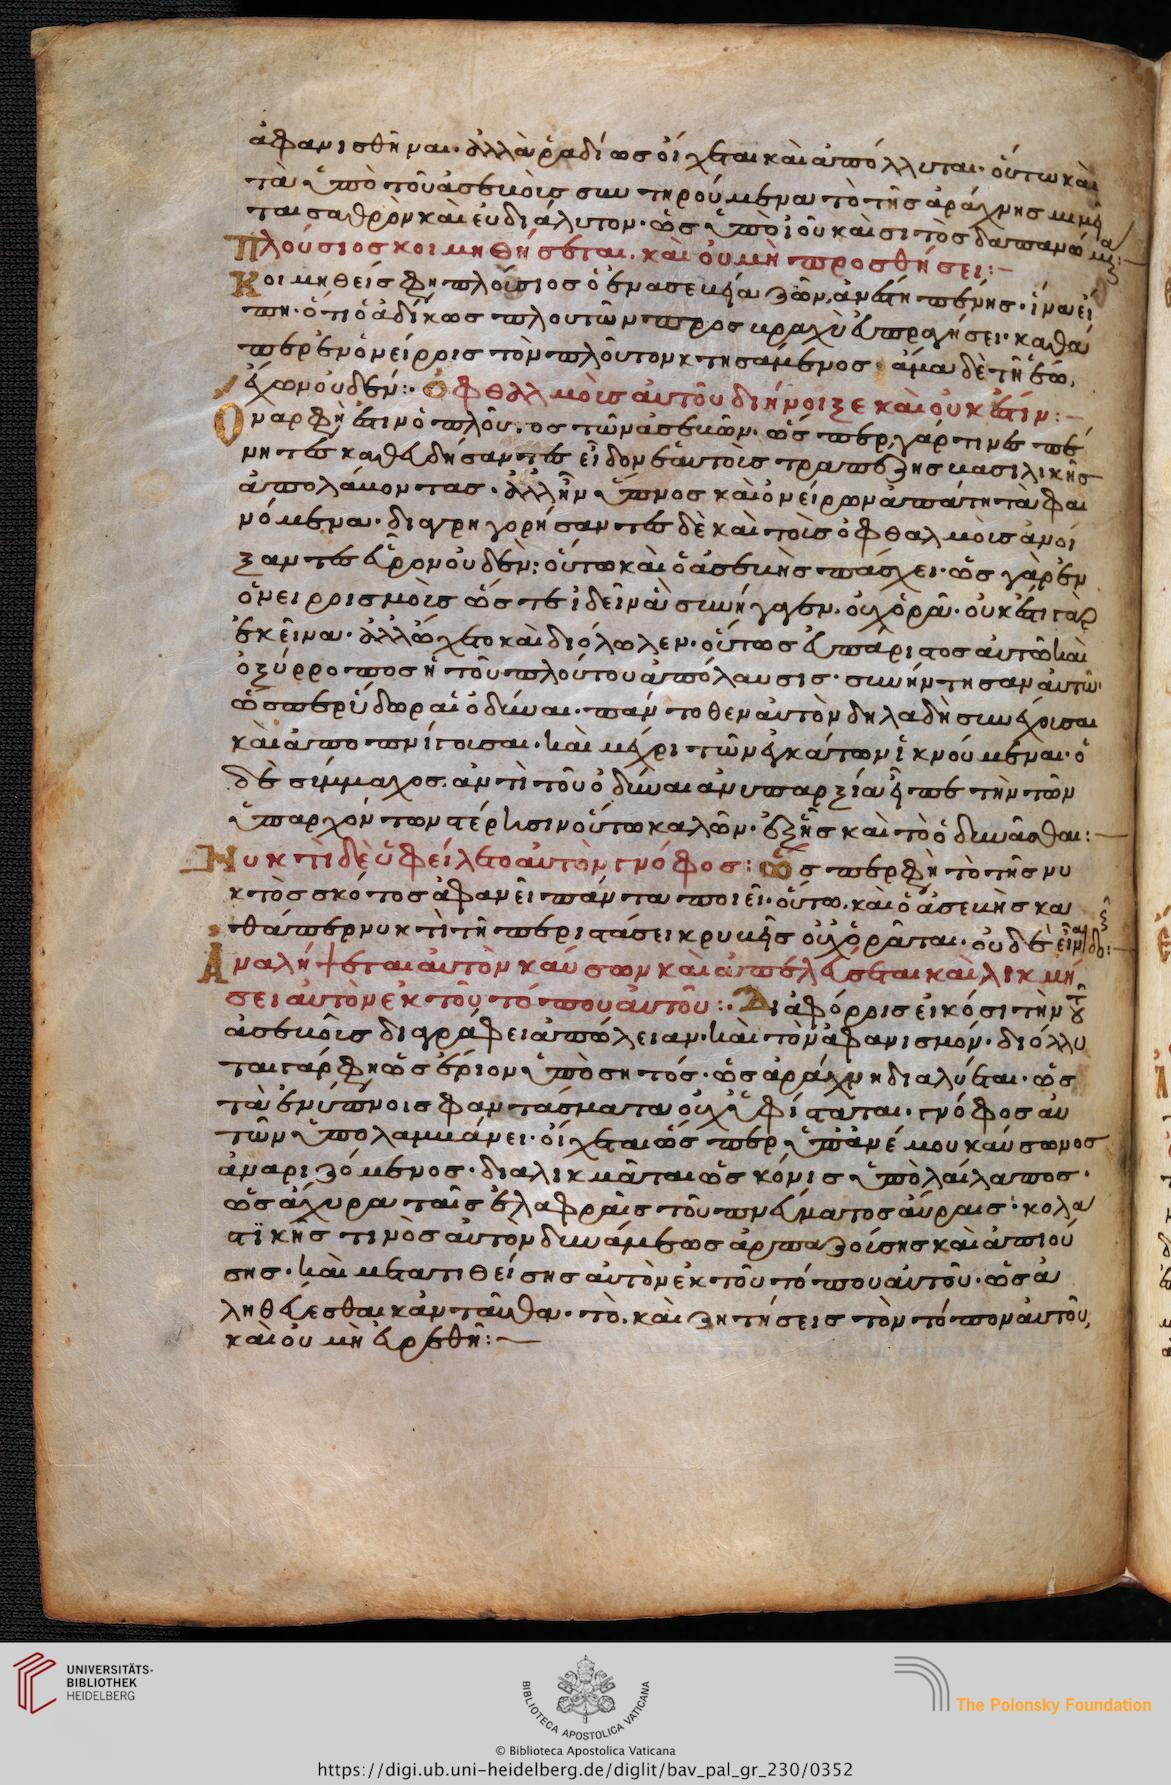 ἀφανισθῆναι· ἀλλὰ ῥαδίως οἴχεται καὶ ἀπόλλυται· οὕτω καὶ
τὰ ὑπὸ τοῦ ἀσεβοῦς συντηρούμενα τὸ τῆς ἀράχνης μιμεῖ
ται σαθρὸν καὶ εὐδιάλυτον· ὡς ὑπὸ ἰοῦ καὶ σητὸς δαπανώμ
πλούσιος κοιμηθήσεται, καὶ οὐ μὴ προσθήσει:
κοιμηθείς φη πλούσιος ὁ ἐν ἀσεβείᾳ ζῶν, ἀνέστη πένης· ἵνα εἴ
πη· ὅτι ὁ ἀδίκως πλουτῶν πρὸς βραχὺ εὐπραγήσει· καθά
περ ἐν ὀνείροις τὸν πλοῦτον κτησάμενος· ἅμα δὲ τῆ ἕω,
ἔχων οὐδέν: ὀφθαλμοὺς αὐτοῦ διήνοιξε καὶ οὐκ ἔστιν:
ὄναρ φη ἐστιν ὁ πλοῦτος τῶν ἀσεβῶν· ὥσπερ γάρ τινες πέ
νητες καθευδήσαντες εἶδον ἑαυτοὺς τραπέζης βασιλικῆς
ἀπολάβοντας· ἀλλ' ἦν ὕπνος καὶ ὀνείρων ἀπάτη τὰ φαι
νόμενα· διαγρηγορήσαντες δὲ καὶ τοὺς ὀφθαλμοὺς ἀνοί
ξαντες εὗρον οὐδέν: οὕτω καὶ ὁ ἀσεβὴς πάσχει· ὡς γὰρ ἐν
ὀνειροισμοῖς ὥστε ἰδεῖν ἃ συνήγαγεν, οὐχ ὁρᾷ· οὐκ ἔστι γὰρ
ἐκεῖνα· ἀλλ' ᾤχετο καὶ διόλωλεν· οὕτως εὐπάριστος αὐτῶ καὶ
ὀξύρροπος ἡ τοῦ πλούτου ἀπόλαυσις· συνήντησαν αὐτῶ
ὥσπερ ὕδωρ αἱ ὀδύναι· πάντοθεν αὐτὸν δηλαδὴ συνέχουσαι
καὶ ἀποπνίγουσαι· καὶ μέχρι τῶν ἐγκάτων ἱκνούμεναι· ὁ
δὲ σύμμαχος, ἀντὶ τοῦ ὀδύναι ἀνυπαρξία εἶπε τὴν τῶν
ὑπαρχόντων στέρησιν οὕτω καλῶν· ἐξ ἧς καὶ τὸ ὀδυνᾶσθαι:
νυκτὶ δὲ ὑφείλετο αὐτὸν γνόφος: ὥσπερ φη τὸ τῆς νυ
κτὸς σκότος ἀφανεῖ πάντα ποιεῖ· οὕτω, καὶ ὁ ἀσεβὴς κα
θάπερ νυκτὶ τῆ περιστάσει κρυβεὶς οὐχ ὁρᾶται·
ἀναλήψεται αὐτὸν καύσων καὶ ἀπελεύσεται καὶ λικμή
σει αὐτὸν ἐκ τοῦ τόπου αὐτοῦ: διαφόροις εἰκόσι τὴν τοῦ
ἀσεβοῦς διαγράφει ἀπώλειαν· καὶ τὸν ἀφανισμόν· διόλλυ
ται γάρ φη ὡς ἔριον ὑπὸ σητός· ὡς ἀράχνη διαλύεται· ὡς
τὰ ἐνυπνίοις φαντάσματα οὐχ ὑφίσταται· γνόφος αὐ
τὸν ὑπολαμβάνει· οἴχεται ὥσπερ ὑπ' ἀνέμου καύσωνος
ἀναριζόμενος· διαλικμᾶται ὡς κόνις ὑπὸ λαίλαπος·
ὡς ἄχυρα ταῖς ἐλαφραῖς τοῦ πνεύματος αὔραις· κολα
στικῆς τινὸς αὐτὸν δυνάμεως ἁρπαζούσης καὶ ἀπιού
σης· καὶ μετατιθείσης αὐτὸν ἐκ τοῦ τόπου αὐτοῦ· ὡς ἀ
ληθεύεσθαι κἀνταῦθα· τὸ, καὶ ζητήσεις τὸν τόπον αὐτοῦ,
καὶ οὐ μὴ εὑρεθῆ:
UNIVERSITÄTS-
BIBLIOTHEK
HEIDELBERG
BIBLIOTECA APOSTOLICA VATICANA
The Polonsky Foundation
© Biblioteca Apostolica Vaticana
https://digi.ub.uni-heidelberg.de/diglit/bav_pal_gr_230/0352